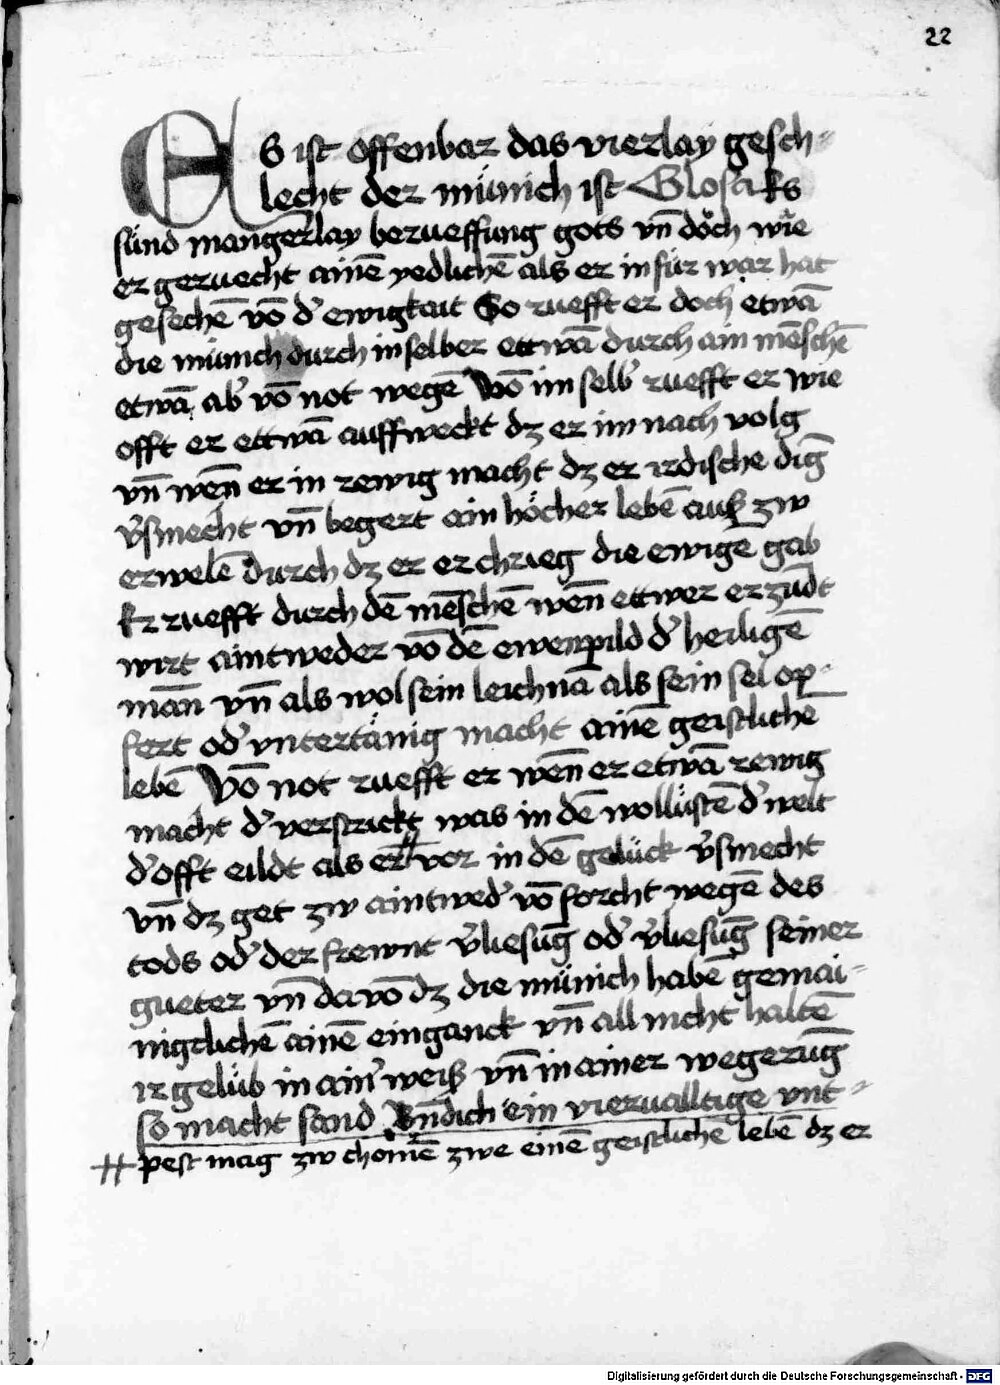 22
ES ist offenbar das vierlay gesch⸗
lecht der münich ist Glosa Es
sünd mangerlay berueffung gots vn̄ doͤch wie
er geruecht ainē yedlichē als er in für war hat
gesechē vō dʾ ewigkait So ruefft er doch etwā
die münich durch in selber ettwā durch ain mēschē
etwā abʾ vō not wegē Vō im selbʾ ruefft er wie
offt er ettwā auffweckt dz er im nach volg
vn̄ wen̄ er in rewig macht dz er irdische dīg
vʾsmecht vn̄ begert ain höcher lebē auß zw
erwelē durch dz er er chrieg die ewigē gab
Er ruefft durch dē mēschē wen̄ ettwer erzūdt
wirt aintweder vō dē ewenpild dʾ heiligē
man̄ vn̄ als wol sein leichnā als sein sel op⸗
fert odʾ vntertänig macht ainē geistlichē
lebē Vō not ruefft er wen̄ er etwā rewig
macht dʾ verstrickt was in dē wollüstē dʾ welt
dʾ offt eildt als er vor in dē gelück vʾsmecht
vn̄ dz get zw aintwedʾ vō forcht wegē des
tods odʾ der frewnt vʾliesūg odʾ vʾliesūg seiner
gueter vn̄ da vō dz die münich habē gemai⸗
nigtlichē ainē einganck vn̄ all nicht haltē
ir gelüb in ainʾ weiß vn̄ in ainer wegerūg
so macht sand Bn̄dich ein viervalltige vnt⸗
# pest mag zw chomē zwe einē geistlichē lebē dz er
Digitalisierung gefördert durch die Deutsche Forschungsgemeinschaft - DFG